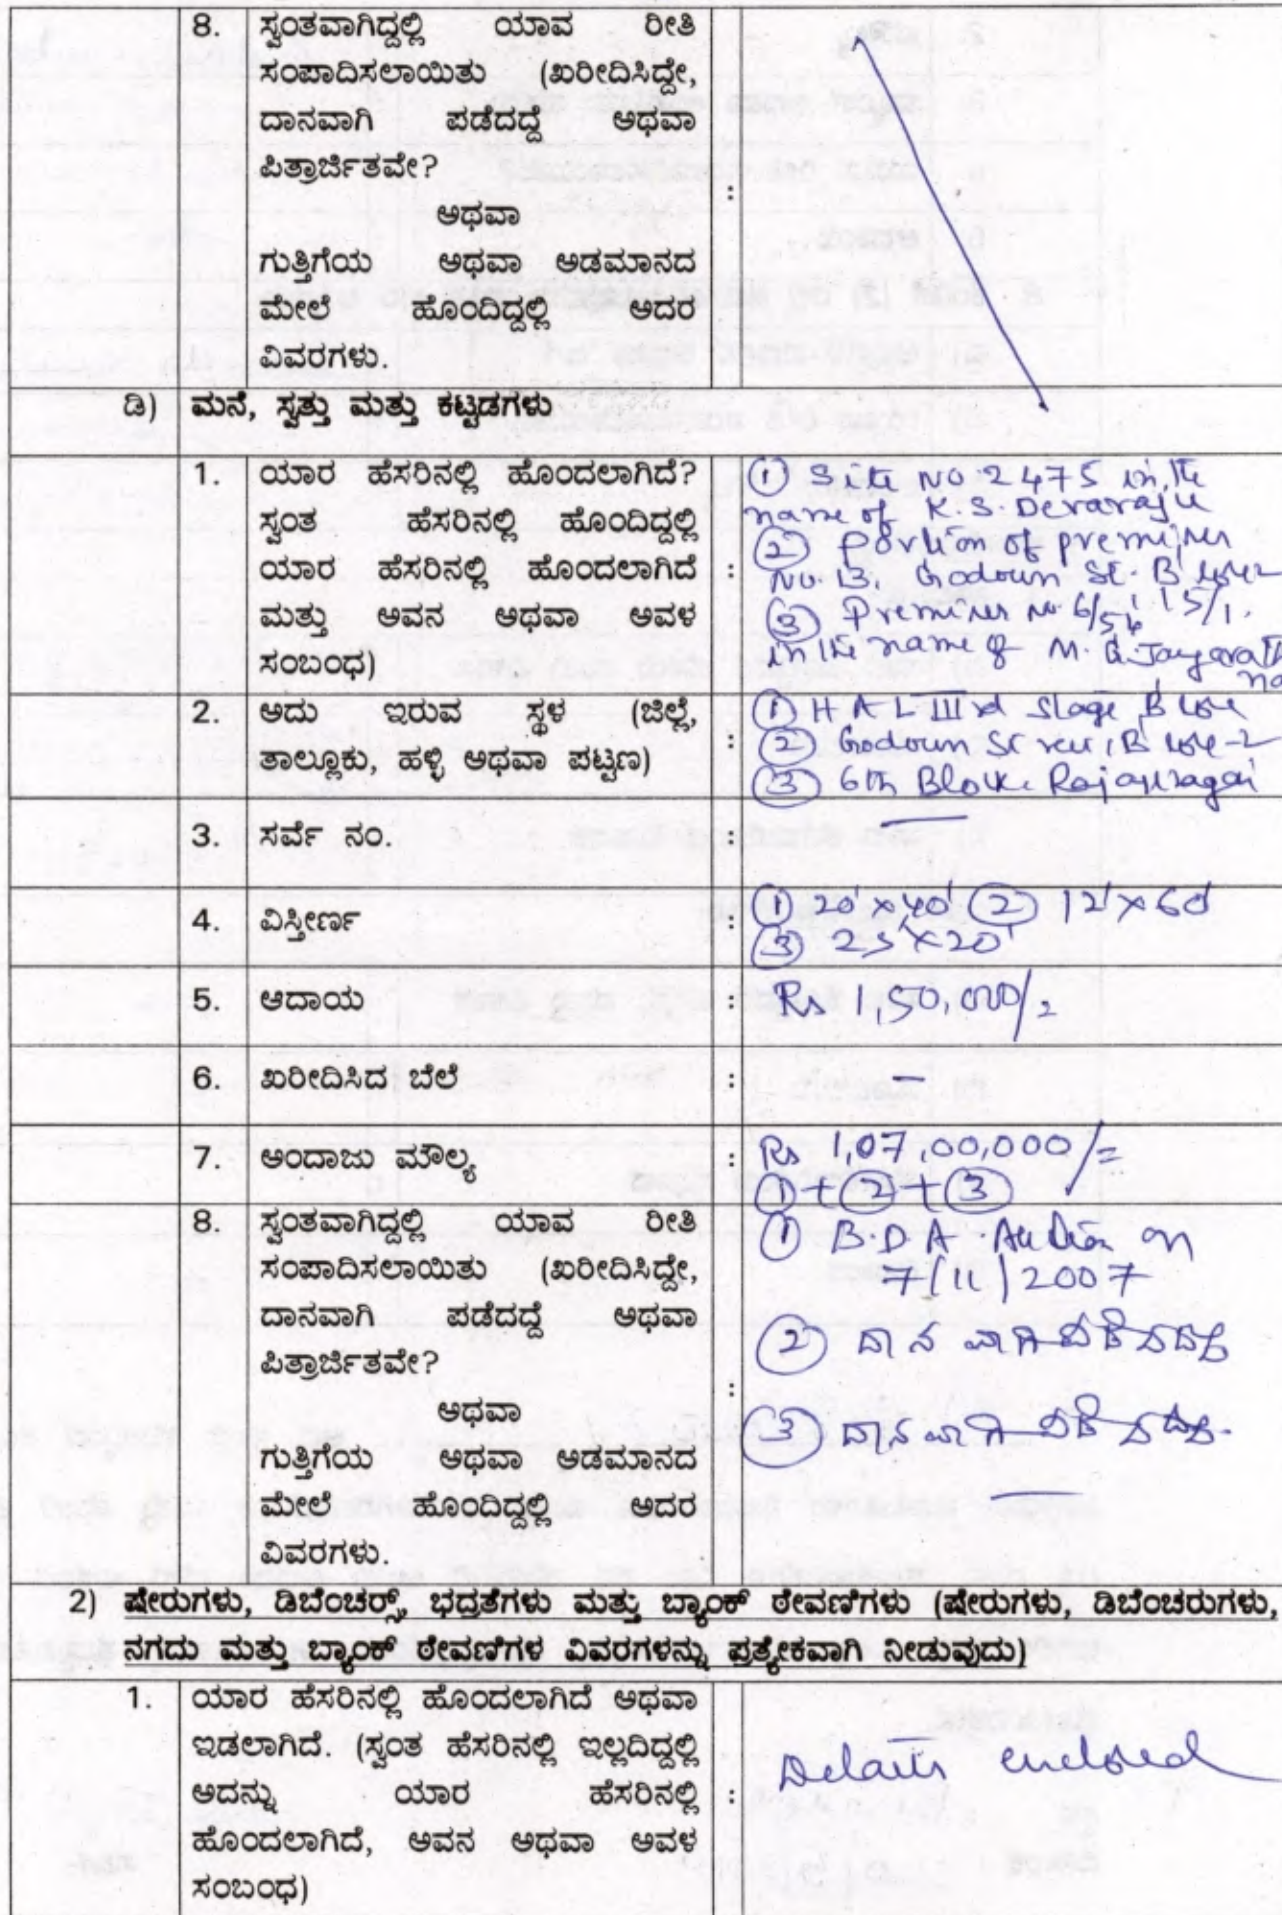 8. ಸ್ವಂತವಾಗಿದ್ದಲ್ಲಿ ಯಾವ ರೀತಿ
ಸಂಪಾದಿಸಲಾಯಿತು (ಖರೀದಿಸಿದ್ದೇ,
ದಾನವಾಗಿ ಪಡೆದದ್ದೆ ಅಥವಾ
ಪಿತ್ರಾರ್ಜಿತವೇ?
:
ಅಥವಾ
ಗುತ್ತಿಗೆಯ ಅಥವಾ ಅಡಮಾನದ
ಮೇಲೆ ಹೊಂದಿದ್ದಲ್ಲಿ ಅದರ
ವಿವರಗಳು.
ಡಿ) ಮನೆ, ಸ್ವತ್ತು ಮತ್ತು ಕಟ್ಟಡಗಳು
1. ಯಾರ ಹೆಸರಿನಲ್ಲಿ ಹೊಂದಲಾಗಿದೆ?
ಸ್ವಂತ ಹೆಸರಿನಲ್ಲಿ ಹೊಂದಿದ್ದಲ್ಲಿ
ಯಾರ ಹೆಸರಿನಲ್ಲಿ ಹೊಂದಲಾಗಿದೆ :
ಮತ್ತು ಅವನ ಅಥವಾ ಅವಳ
ಸಂಬಂಧ)
① Site No 2475 in the
name of K.S. Devaraju
② portion of premises
No. 13, Godown St. B'lore-2
③ Premises No 6/54, 15/1.
in the name of M.G. Jayarath
na
2. ಅದು ಇರುವ ಸ್ಥಳ (ಜಿಲ್ಲೆ,
ತಾಲ್ಲೂಕು, ಹಳ್ಳಿ ಅಥವಾ ಪಟ್ಟಣ) :
① HAL IIIrd Stage, B'lore
② Godown Street, B'lore-2
③ 6th Block Rajajinagar
3. ಸರ್ವೆ ನಂ. : —
4. ವಿಸ್ತೀರ್ಣ : ① 20'×40' ② 12'×60'
③ 25'×20'
5. ಆದಾಯ : Rs 1,50,000/=
6. ಖರೀದಿಸಿದ ಬೆಲೆ : —
7. ಅಂದಾಜು ಮೌಲ್ಯ : Rs 1,07,00,000/=
①+②+③
8. ಸ್ವಂತವಾಗಿದ್ದಲ್ಲಿ ಯಾವ ರೀತಿ
ಸಂಪಾದಿಸಲಾಯಿತು (ಖರೀದಿಸಿದ್ದೇ,
ದಾನವಾಗಿ ಪಡೆದದ್ದೆ ಅಥವಾ
ಪಿತ್ರಾರ್ಜಿತವೇ?
:
ಅಥವಾ
ಗುತ್ತಿಗೆಯ ಅಥವಾ ಅಡಮಾನದ
ಮೇಲೆ ಹೊಂದಿದ್ದಲ್ಲಿ ಅದರ
ವಿವರಗಳು.
① B.D.A. Auction on
7/11/2007
② ದಾನವಾಗಿ ಪಡೆದದ್ದು
③ ದಾನವಾಗಿ ಪಡೆದದ್ದು.
2) ಷೇರುಗಳು, ಡಿಬೆಂಚರ್ಸ್, ಭದ್ರತೆಗಳು ಮತ್ತು ಬ್ಯಾಂಕ್ ಠೇವಣಿಗಳು (ಷೇರುಗಳು, ಡಿಬೆಂಚರುಗಳು,
ನಗದು ಮತ್ತು ಬ್ಯಾಂಕ್ ಠೇವಣಿಗಳ ವಿವರಗಳನ್ನು ಪ್ರತ್ಯೇಕವಾಗಿ ನೀಡುವುದು)
1. ಯಾರ ಹೆಸರಿನಲ್ಲಿ ಹೊಂದಲಾಗಿದೆ ಅಥವಾ
ಇಡಲಾಗಿದೆ. (ಸ್ವಂತ ಹೆಸರಿನಲ್ಲಿ ಇಲ್ಲದಿದ್ದಲ್ಲಿ
ಅದನ್ನು ಯಾರ ಹೆಸರಿನಲ್ಲಿ :
ಹೊಂದಲಾಗಿದೆ, ಅವನ ಅಥವಾ ಅವಳ
ಸಂಬಂಧ)
Details enclosed